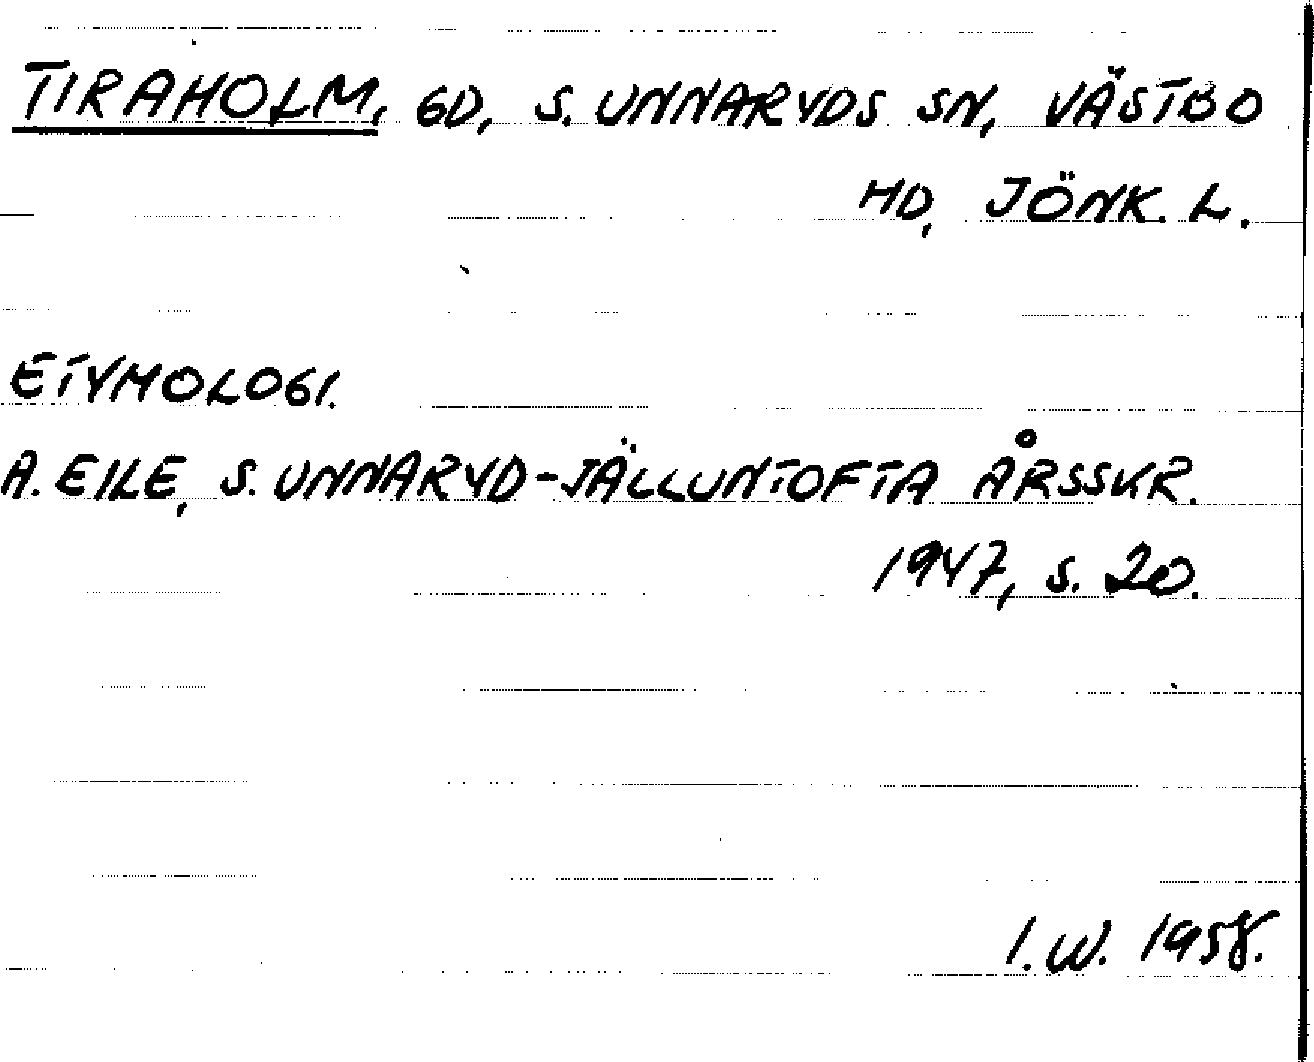 TIRAHOLM, GD, S. UNNARYDS SN, VÄSTBO
HD, JÖNK. L.
ETYMOLOGI.
A. EILE, S. UNNARYD-JÄLLUNTOFTA ÅRSSKR.
1947, s. 20.
I.W. 1958.